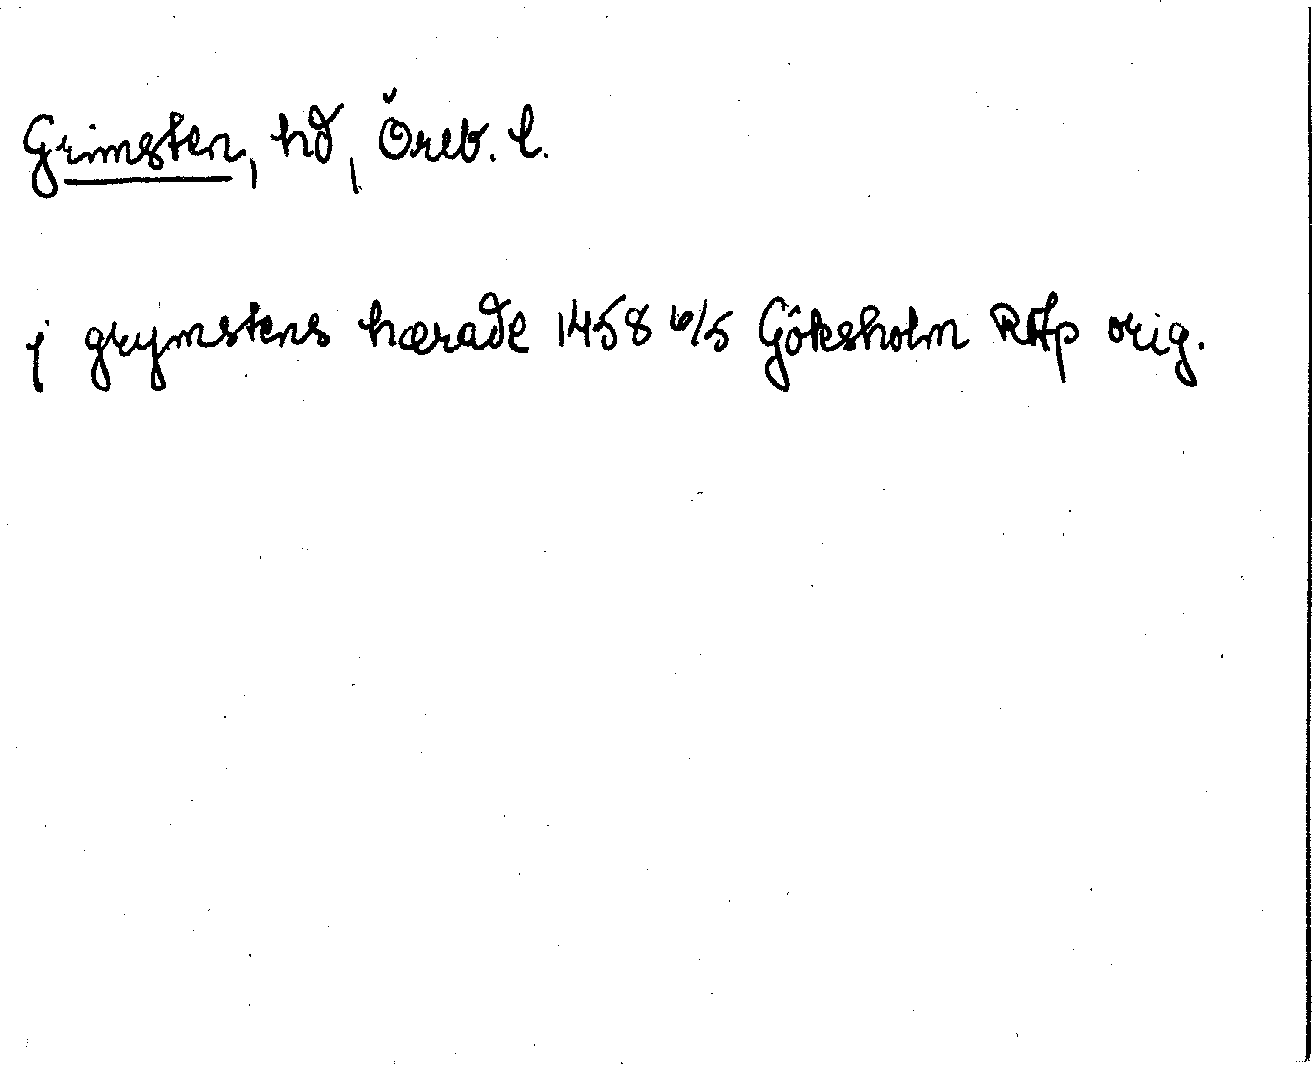 Grimsten, hd, Öreb. l.
j grymstens hærade 1458 6/5 Göksholm RAp orig.